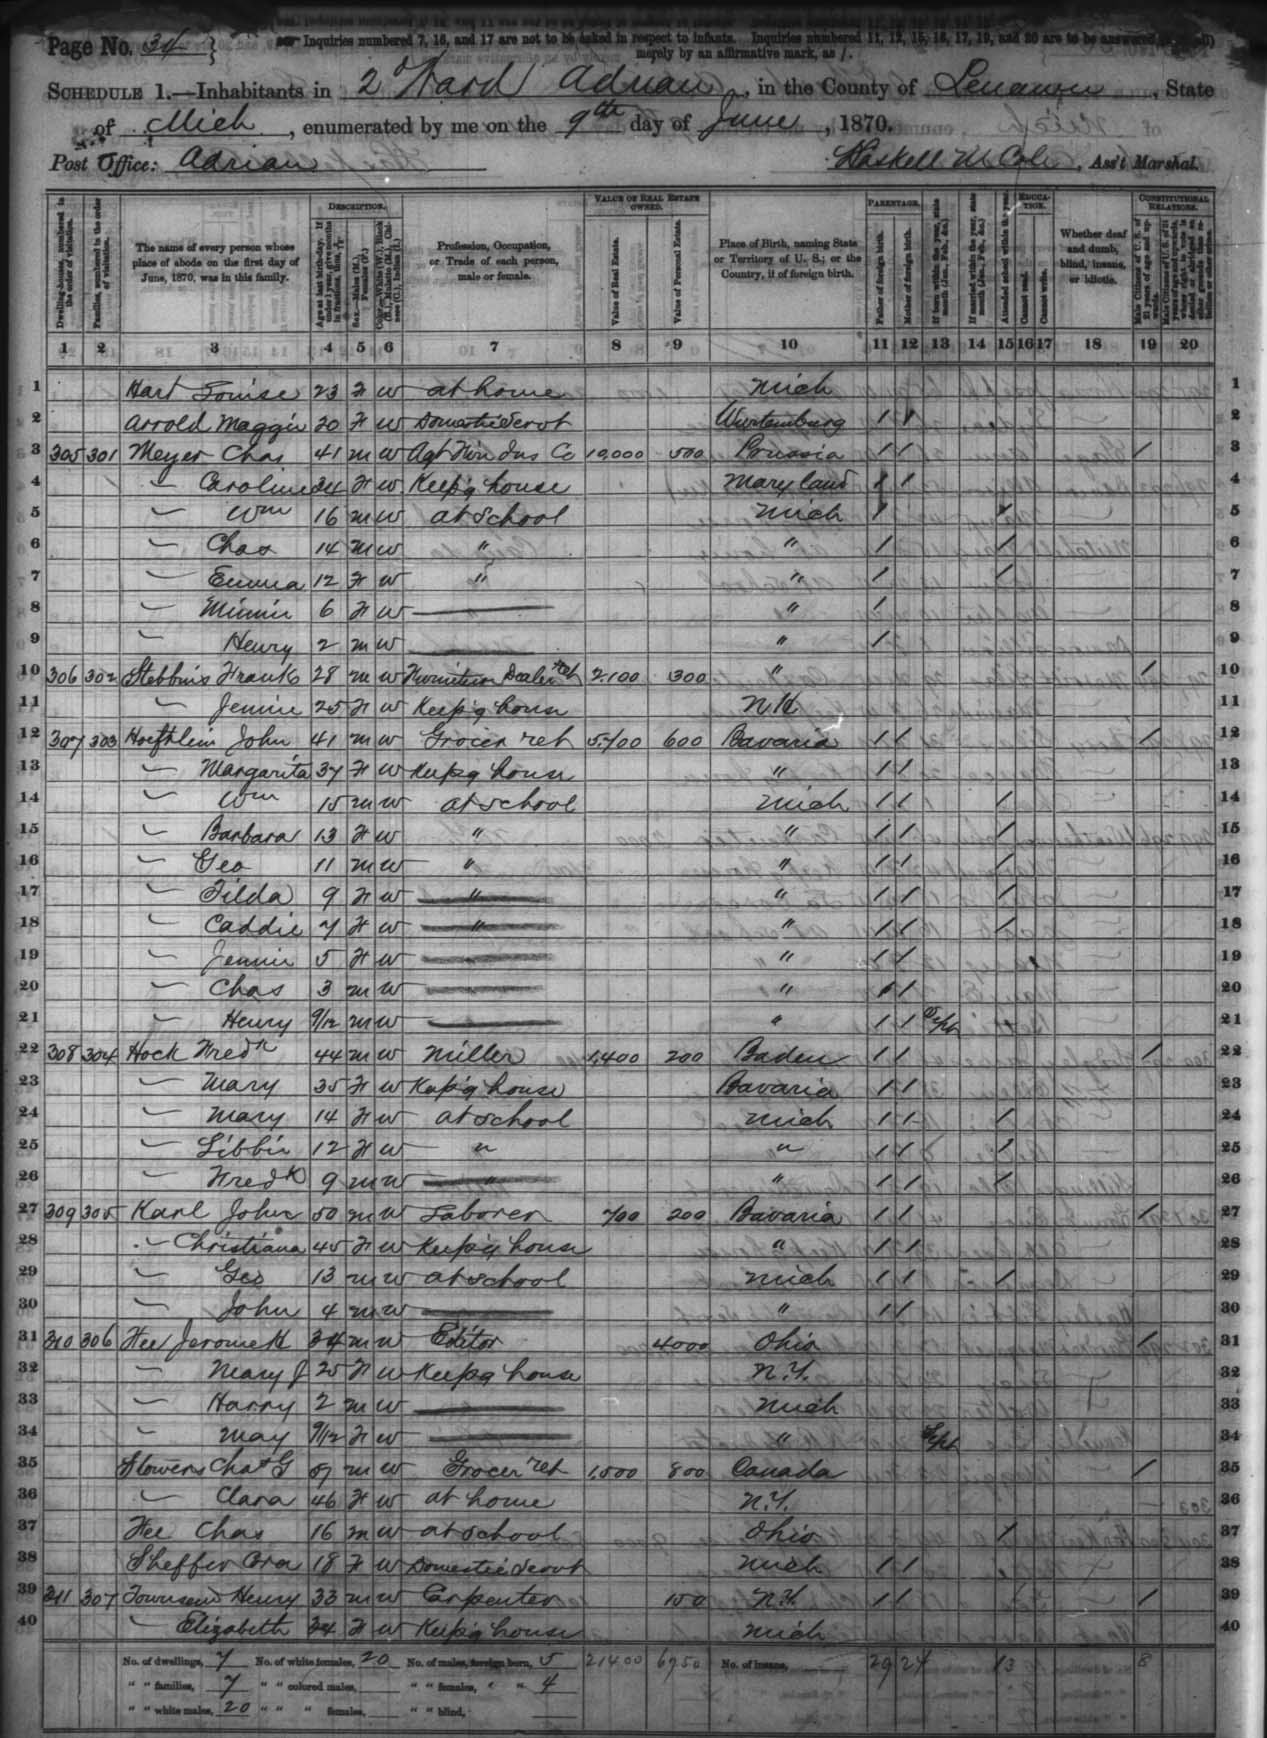 Page No. 34
Inquiries numbered 7, 16, and 17 are not to be asked in respect to infants. Inquiries numbered 11, 12, 15, 16, 17, 19, and 20 are to be answered
merely by an affirmative mark, as /.
SCHEDULE 1.—Inhabitants in 2d Ward Adrian, in the County of Lenawee, State
of Mich, enumerated by me on the 9th day of June, 1870.
Post Office: Adrian Haskell M Cole, Ass't Marshal.
DESCRIPTION. VALUE OF REAL ESTATE OWNED. PARENTAGE. EDUCATION. CONSTITUTIONAL RELATIONS.
Dwelling-houses, numbered in the order of visitation.
Families, numbered in the order of visitation.
The name of every person whose place of abode on the first day of June, 1870, was in this family.
Age at last birth-day. If under 1 year, give months in fractions, thus, 3/12
Sex.—Males (M.), Females (F.)
Color.—White (W.), Black (B.), Mulatto (M.), Chinese (C.), Indian (I.)
Profession, Occupation, or Trade of each person, male or female.
Value of Real Estate.
Value of Personal Estate.
Place of Birth, naming State or Territory of U. S.; or the Country, if of foreign birth.
Father of foreign birth.
Mother of foreign birth.
If born within the year, state month (Jan., Feb., &c.)
If married within the year, state month (Jan., Feb., &c.)
Attended school within the year.
Cannot read.
Cannot write.
Whether deaf and dumb, blind, insane, or idiotic.
Male Citizens of U. S. of 21 years of age and upwards.
1 2 3 4 5 6 7 8 9 10 11 12 13 14 15 16 17 18 19 20
1 Hart Louise 23 F W at home Mich 1
2 Arrold Maggie 20 F W Domestic Servt Wurtemburg / / 2
3 305 301 Meyer Chas 41 M W Agt Ins Co 10,000 500 Prussia / / / 3
4 " Caroline 34 F W Keep'g house Maryland / / 4
5 " Wm 16 M W at School Mich / / 5
6 " Chas 14 M W " " / / 6
7 " Emma 12 F W " " / / 7
8 " Minnie 6 F W " / 8
9 " Henry 2 M W " / 9
10 306 302 Stebbins Frank 28 M W Furniture Dealer ret 2100 300 " / 10
11 " Jennie 25 F W Keep'g house N H 11
12 307 303 Hoefhlein John 41 M W Grocer ret 5,700 600 Bavaria / / / 12
13 " Margarita 37 F W Keep'g house " / / 13
14 " Wm 15 M W at School Mich / / / 14
15 " Barbara 13 F W " " / / / 15
16 " Geo 11 M W " " / / / 16
17 " Tilda 9 F W " " / / / 17
18 " Caddie 7 F W " " / / / 18
19 " Jennie 5 F W " / / 19
20 " Chas 3 M W " / / 20
21 " Henry 9/12 M W " / / Sept 21
22 308 304 Hock Fredk 44 M W Miller 1,400 200 Baden / / / 22
23 " Mary 35 F W Keep'g house Bavaria / / 23
24 " Mary 14 F W at School Mich / / / 24
25 " Libbie 12 F W " " / / / 25
26 " Fredk 9 M W " " / / / 26
27 309 305 Karl John 50 M W Laborer 700 200 Bavaria / / / 27
28 " Christiana 45 F W Keep'g house " / / 28
29 " Geo 13 M W at School Mich / / / 29
30 " John 4 M W " / / 30
31 310 306 Fee Jerome H 34 M W Editor 4000 Ohio / 31
32 " Mary J 25 F W Keep'g house N.Y. 32
33 " Harry 2 M W Mich 33
34 " May 9/12 F W " Sept 34
35 Stowers Chas G 57 M W Grocer ret 1,500 800 Canada / 35
36 " Clara 46 F W at home N.Y. 36
37 Fee Chas 16 M W at School Ohio / 37
38 Sheffer Ora 18 F W Domestic Servt Mich / / 38
39 311 307 Townsend Henry 33 M W Carpenter 150 N.Y. / / / 39
40 " Elizabeth 34 F W Keep'g house Mich 40
No. of dwellings, 7 No. of white females, 20 No. of males, foreign born, 5 21400 6750 No. of insane, 29 24 13 8
" " families, 7 " " colored males, " " females, " " 4
" " white males, 20 " " " females, " " blind,